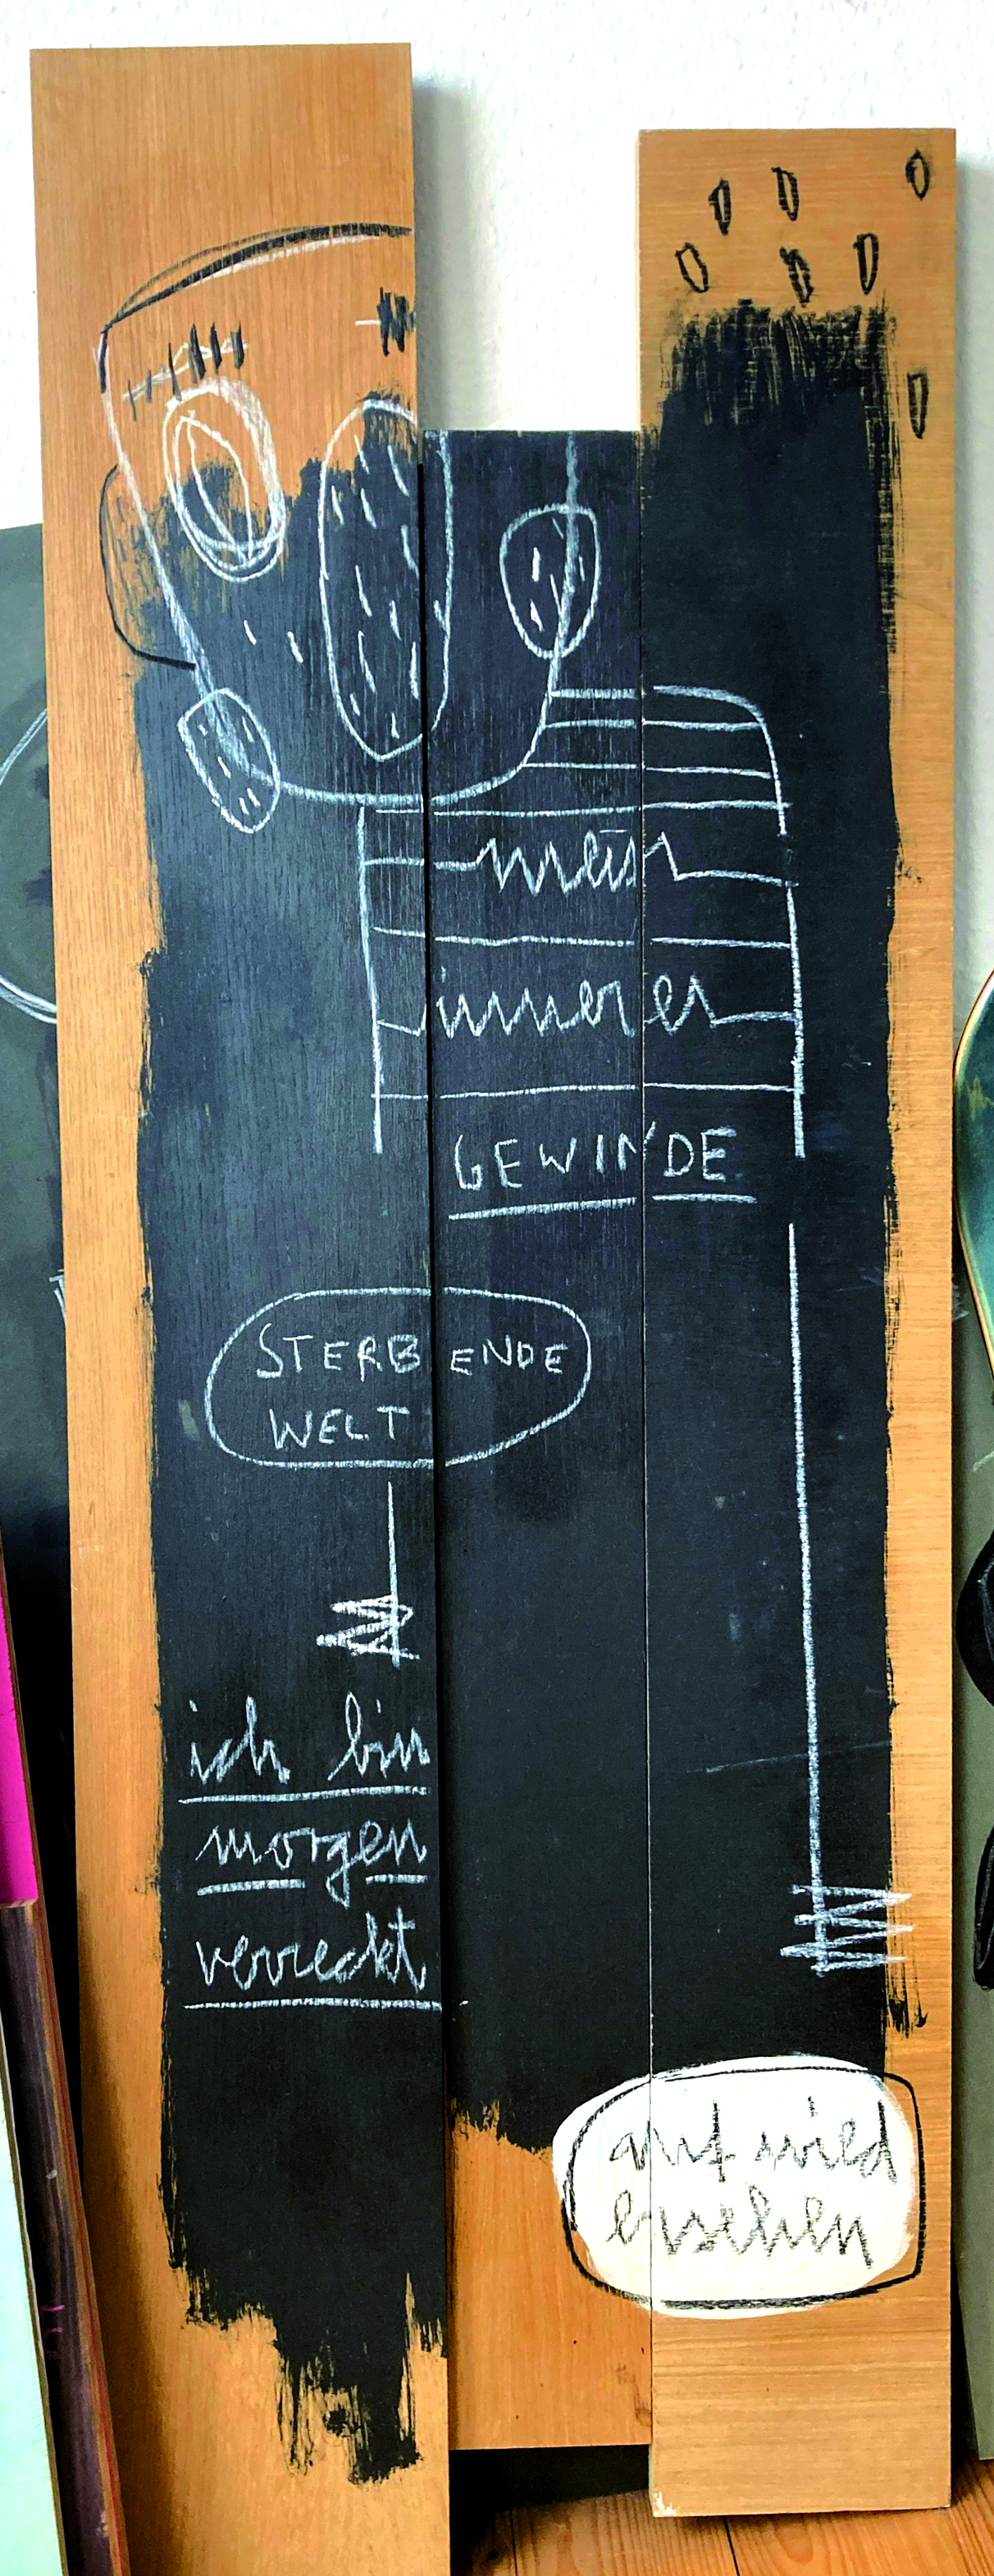 mein
innerer
GEWINDE
STERBENDE
WELT
ich bin
morgen
verreckt
auf wied
ersehen